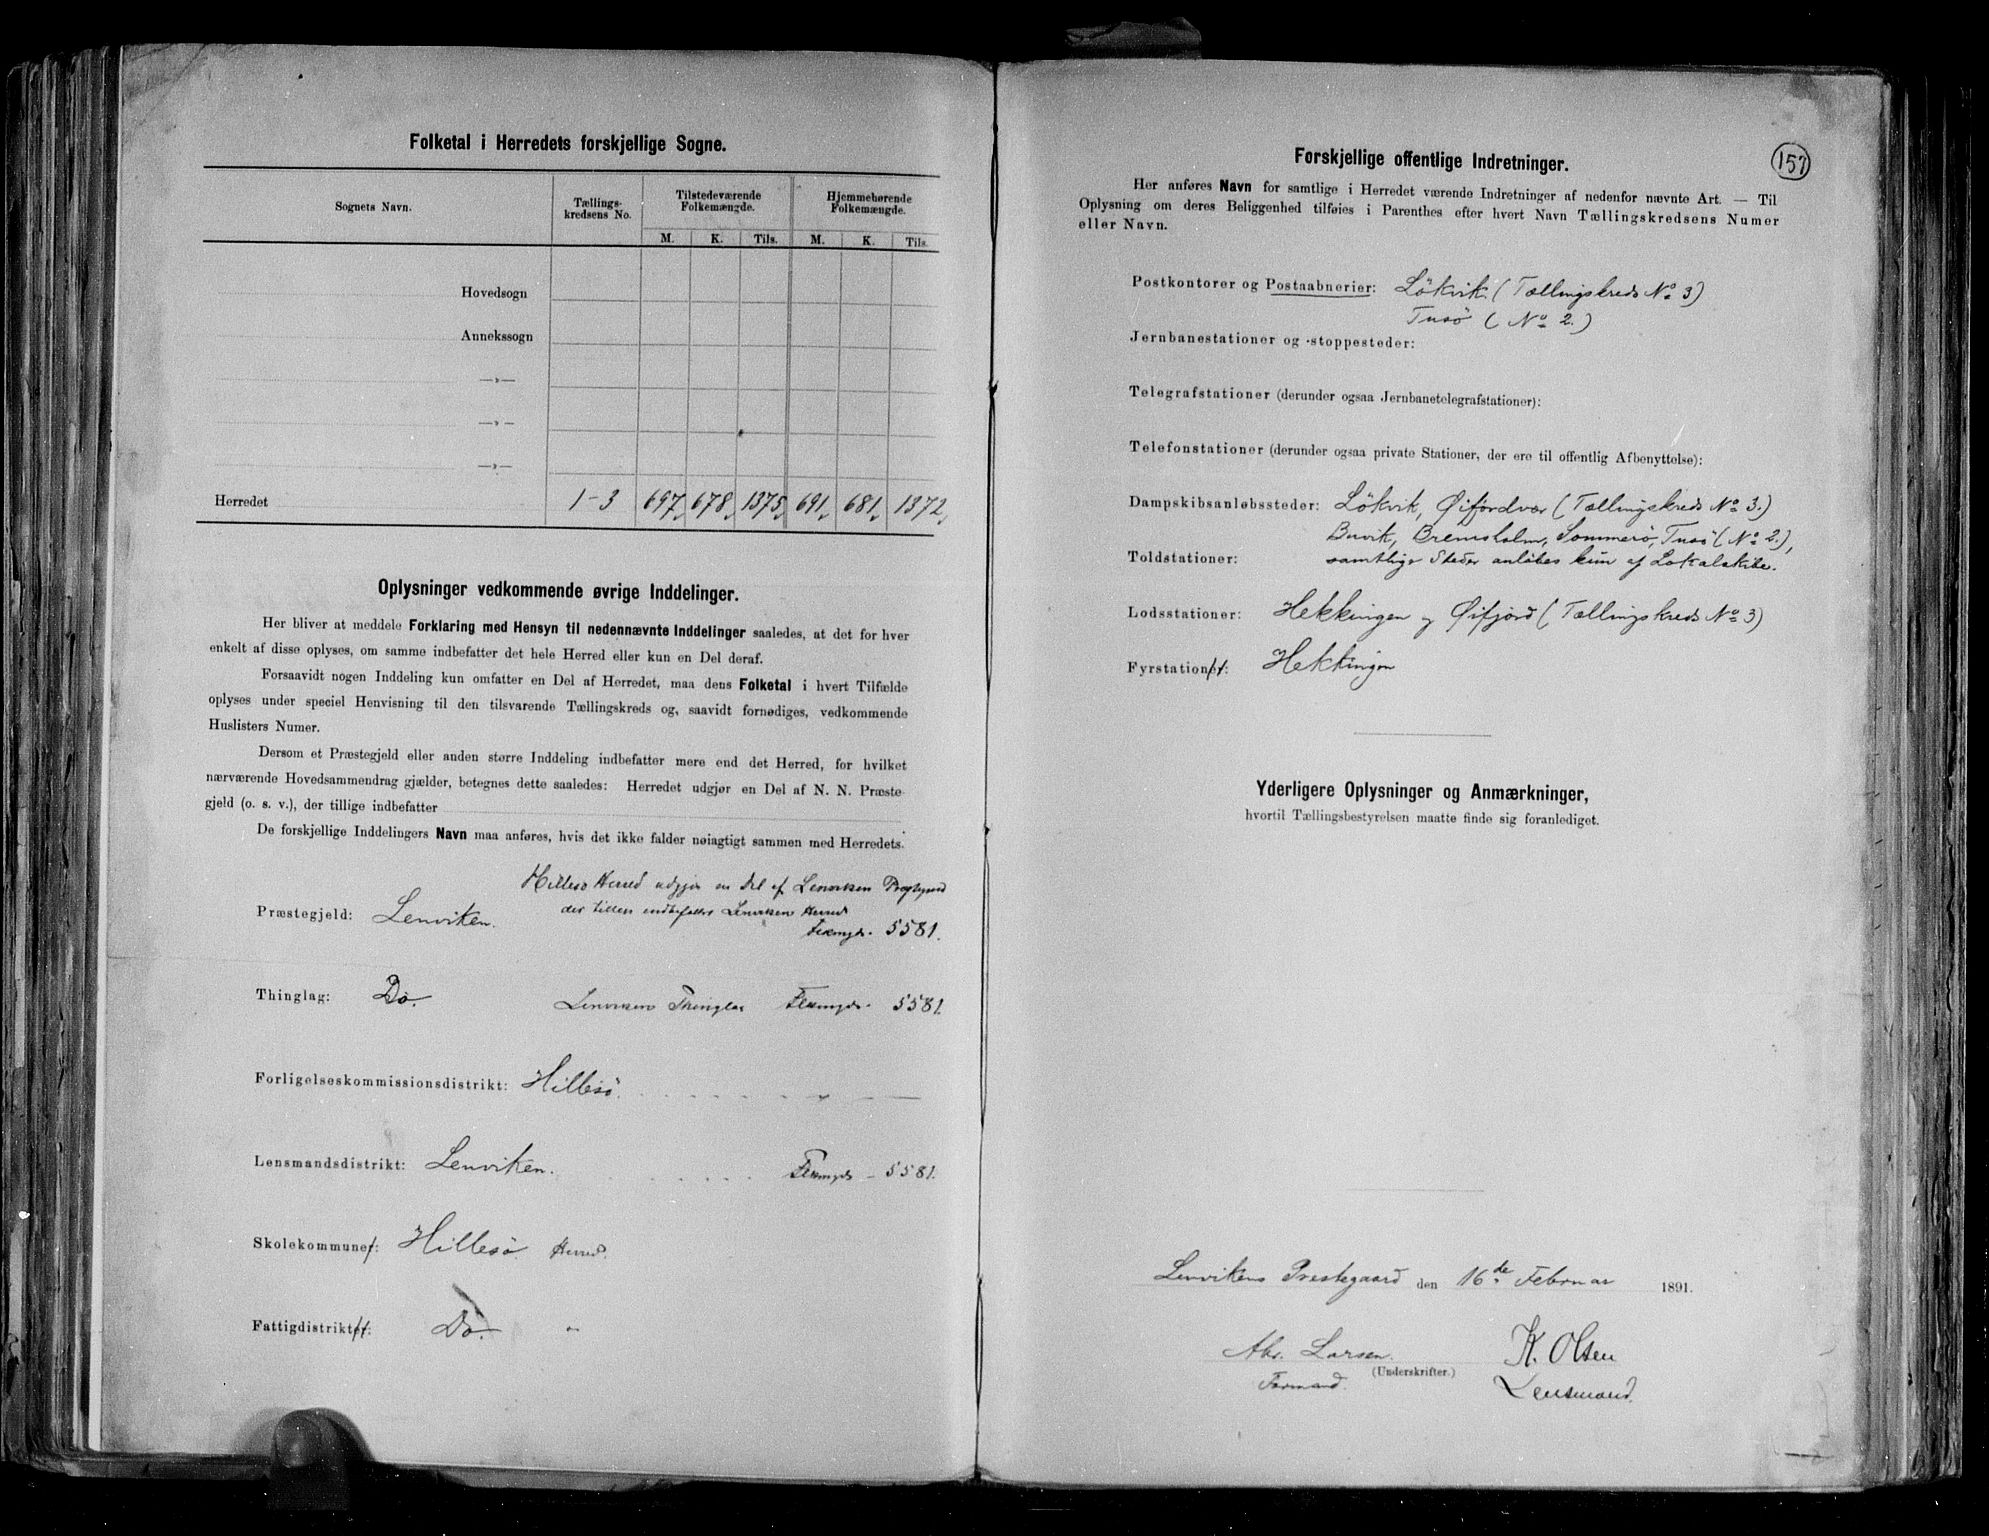 Folketal i Herredets forskjellige Sogne.
Sognets Navn. Tællings-kredsens No. Tilstedeværende Folkemængde. Hjemmehørende Folkemængde.
M. K. Tils. M. K. Tils.
Hovedsogn
Annekssogn
—»—
—»—
—»—
Herredet 1-3 697 678 1375 691 681 1372
Oplysninger vedkommende øvrige Inddelinger.
Her bliver at meddele Forklaring med Hensyn til nedennævnte Inddelinger saaledes, at det for hver
enkelt af disse oplyses, om samme indbefatter det hele Herred eller kun en Del deraf.
Forsaavidt nogen Inddeling kun omfatter en Del af Herredet, maa dens Folketal i hvert Tilfælde
oplyses under speciel Henvisning til den tilsvarende Tællingskreds og, saavidt fornødiges, vedkommende
Huslisters Numer.
Dersom et Præstegjeld eller anden større Inddeling indbefatter mere end det Herred, for hvilket
nærværende Hovedsammendrag gjælder, betegnes dette saaledes: Herredet udgjør en Del af N. N. Præste-
gjeld (o. s. v.), der tillige indbefatter
De forskjellige Inddelingers Navn maa anføres, hvis det ikke falder nøiagtigt sammen med Herredets.
Hillesö Herred udgjør en Del af Lenvikens Prgjeld
der tillige indbefatter Lenvikens Herred
Præstegjeld: Lenviken.
Flkmgde. 5581.
Thinglag: Do. Lenvikens Thinglag Flkmgde. 5581.
Forligelseskommissionsdistrikt: Hillesö.
Lensmandsdistrikt: Lenviken. Flkmgde - 5581.
Skolekommune: Hillesö Herred.
Fattigdistrikt: Do. "
157
Forskjellige offentlige Indretninger.
Her anføres Navn for samtlige i Herredet værende Indretninger af nedenfor nævnte Art. — Til
Oplysning om deres Beliggenhed tilføies i Parenthes efter hvert Navn Tællingskredsens Numer
eller Navn.
Postkontorer og Postaabnerier: Lökvik (Tællingskreds No 3)
Tusö (No 2.)
Jernbanestationer og -stoppesteder:
Telegrafstationer (derunder ogsaa Jernbanetelegrafstationer):
Telefonstationer (derunder ogsaa private Stationer, der ere til offentlig Afbenyttelse):
Dampskibsanløbssteder: Lökvik, Øifjordvær (Tællingskreds No 3.)
Buvik, Bremsholm, Sommerö, Tusö (No 2.),
Toldstationer: samtlige Steder anløbes kun af Lokalskibe.
Lodsstationer: Hekkingen og Øifjord (Tællingskreds No 3)
Fyrstation: Hekkingen
Yderligere Oplysninger og Anmærkninger,
hvortil Tællingsbestyrelsen maatte finde sig foranlediget.
Lenvikens Prestegaard den 16de Februar 1891.
Abr. Larsen. K. Olsen
(Underskrifter.)
Formand. Lensmand.